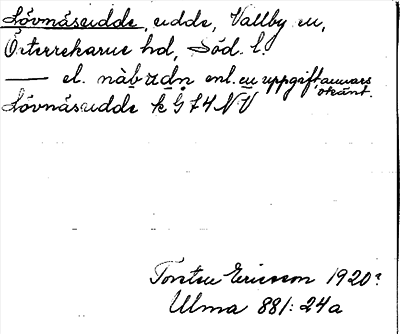 Lövnäsudde, udde, Vallby sn,
Österrekarne hd, Söd. l.
— el. näbbudn enl. en uppgift, annars
okänt.
Lövnäsudde k G 74 NV
Torsten Ericsson 1920?
Ulma 881: 24a